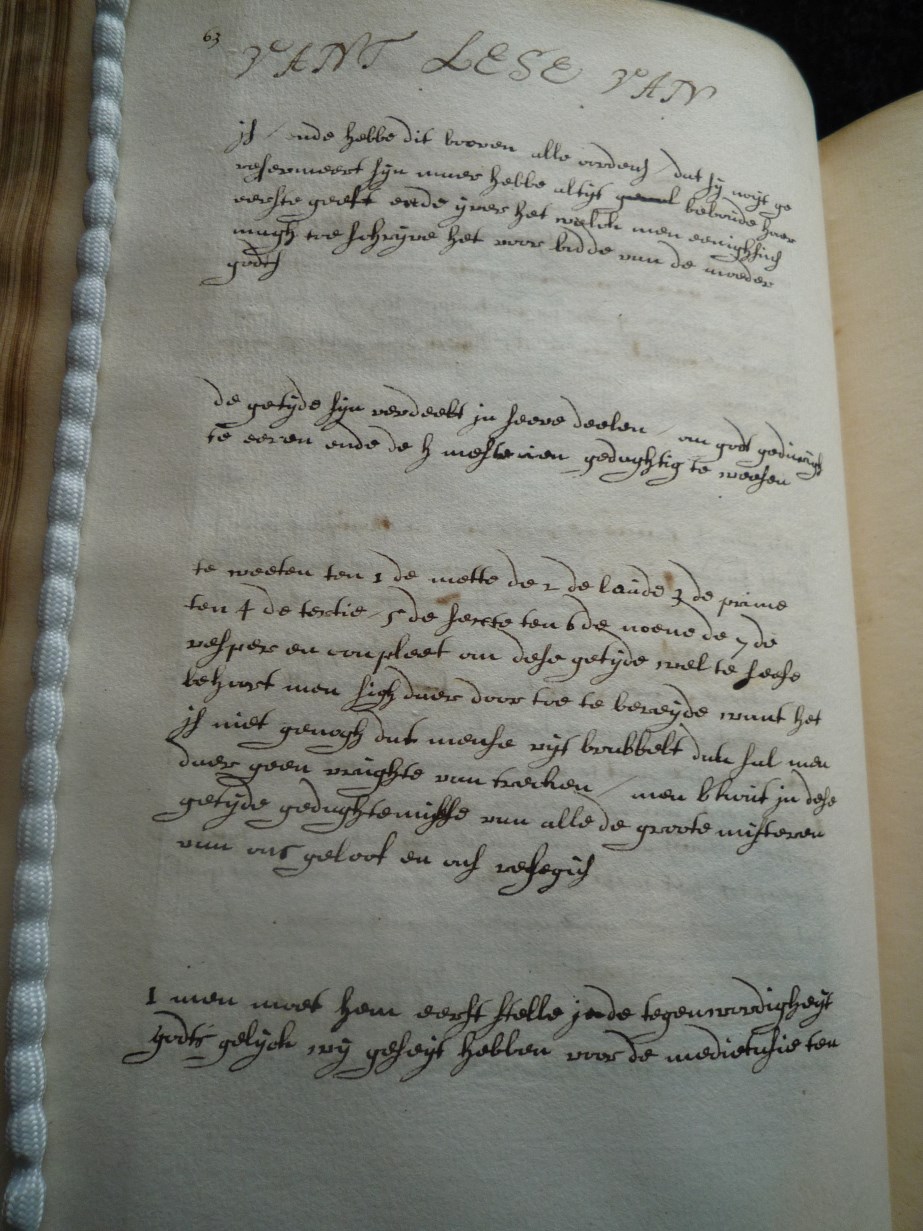 63
VANT LESE VAN
is / ende hebbe dit booven alle ordens / dat sij noijt ge
reformeert sijn maer hebbe altijt behoude haer
eerste geest ende ijver het welck men eenighsins
magh toe schrijve het voor bidde van de moeder
godts
de getijde sijn verdeelt in seeve deelen / om godt geduirigh
te eeren ende de h misterien gedaghtig te weesen
te weeten ten 1 de mette de 2 de laude 3 de prime
ten 4 de tertie / 5 de sexte ten 6 de noene de 7 de
vesper en compleet om dese getijde wel te leese
behoort men sigh daer door toe te bereijde want het
is niet genogh dat mense uijt brabbelt dan sal men
daer geen vrughte van trecken / men in dese
getijde gedaghtenisse van alle de groote misteren
van ons geloof en als
1 men moet hem eerst stelle in de tegenwoordigheijt
godts gelijck wij geseijt hebben voor de meditatie ten